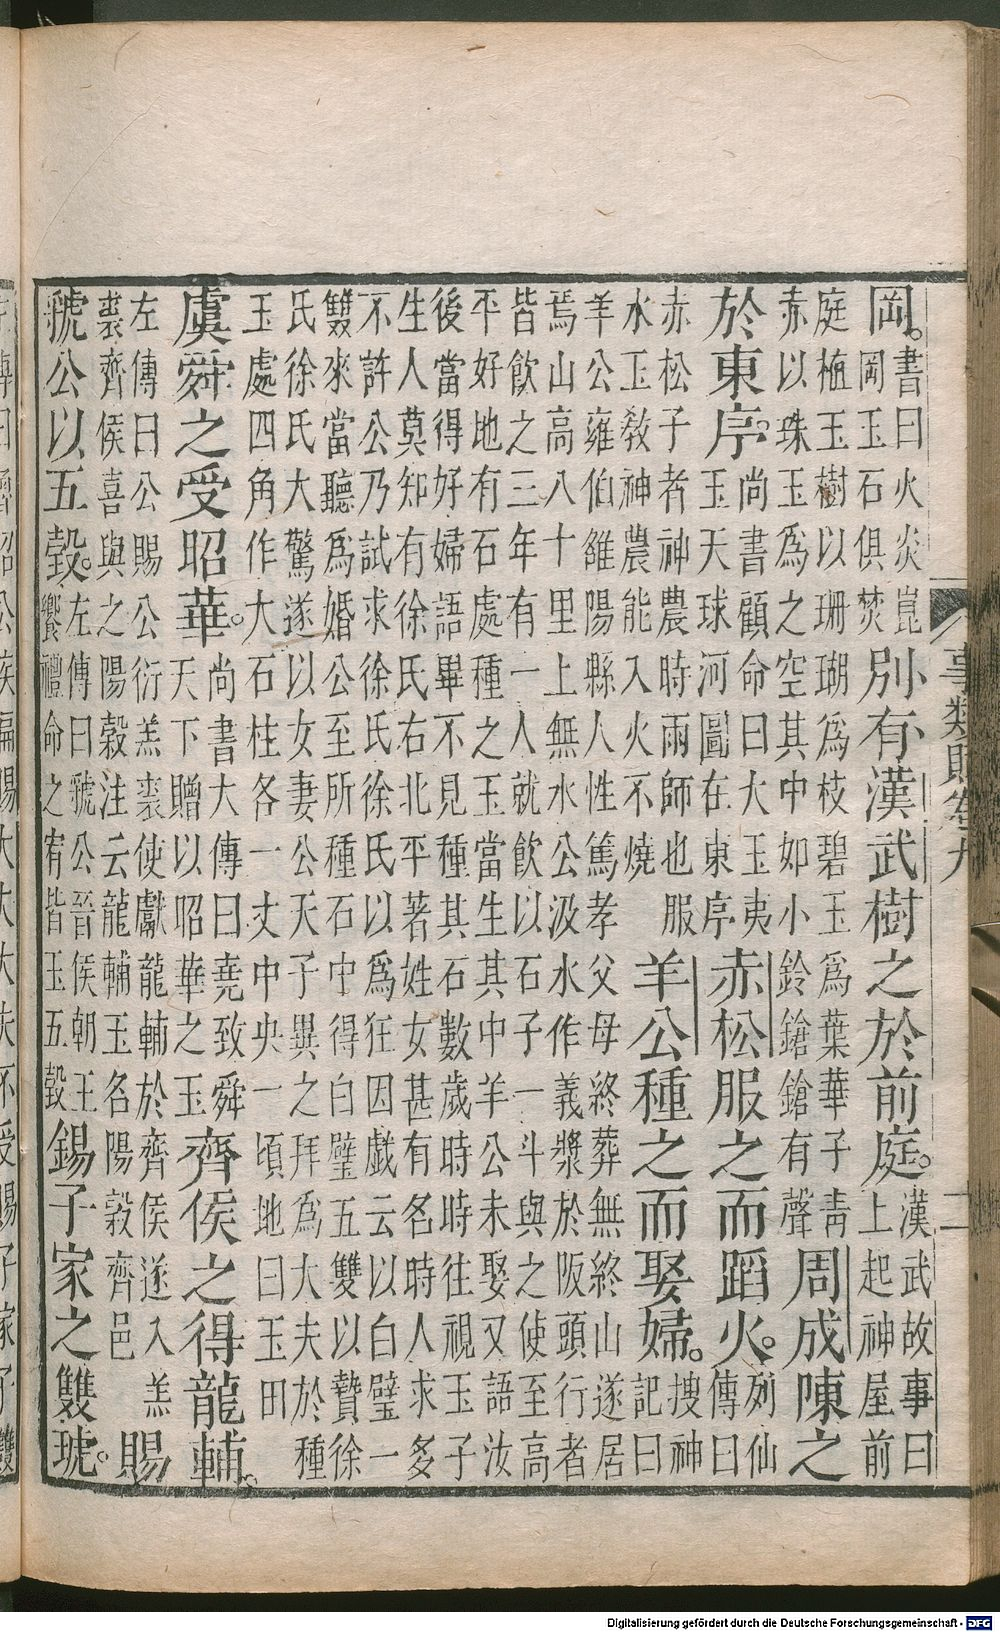 事類賦卷九 二
岡。書曰火炎崑岡玉石俱焚別有漢武樹之於前庭。漢武故事曰上起神屋前
庭植玉樹以珊瑚為枝碧玉為葉華子青赤以珠玉為之空其中如小鈴鎗鎗有聲周成陳之
於東序。尚書顧命曰大玉夷玉天球河圖在東序赤松服之而蹈火。列仙傳曰
赤松子者神農時雨師也服水玉教神農能入火不燒羊公種之而娶婦。搜神記曰
羊公雍伯雒陽縣人性篤孝父母終葬無終山遂居焉山高八十里上無水公汲水作義漿於阪頭行者
皆飲之三年有一人就飲以石子一斗與之使至高平好地有石處種之玉當生其中羊公未娶又語汝
後當得好婦語畢不見種其石數歲時時往視玉子生人莫知有徐氏右北平著姓女甚有名時人求多
不許公乃試求徐氏徐氏以為狂因戲云以白璧一雙來當聽為婚公至所種石中得白璧五雙以贄徐
氏徐氏大驚遂以女妻公天子異之拜為大夫於種玉處四角作大石柱各一丈中央一頃地曰玉田
虞舜之受昭華。尚書大傳曰堯致舜天下贈以昭華之玉齊侯之得龍輔。
左傳曰公賜公衍羔裘使獻龍輔於齊侯遂入羔裘齊侯喜與之陽穀注云龍輔玉名陽穀齊邑賜
虢公以五瑴。左傳曰虢公晉侯朝王饗禮命之宥皆玉五瑴錫子家之雙琥。
Digitalisierung gefördert durch die Deutsche Forschungsgemeinschaft - DFG